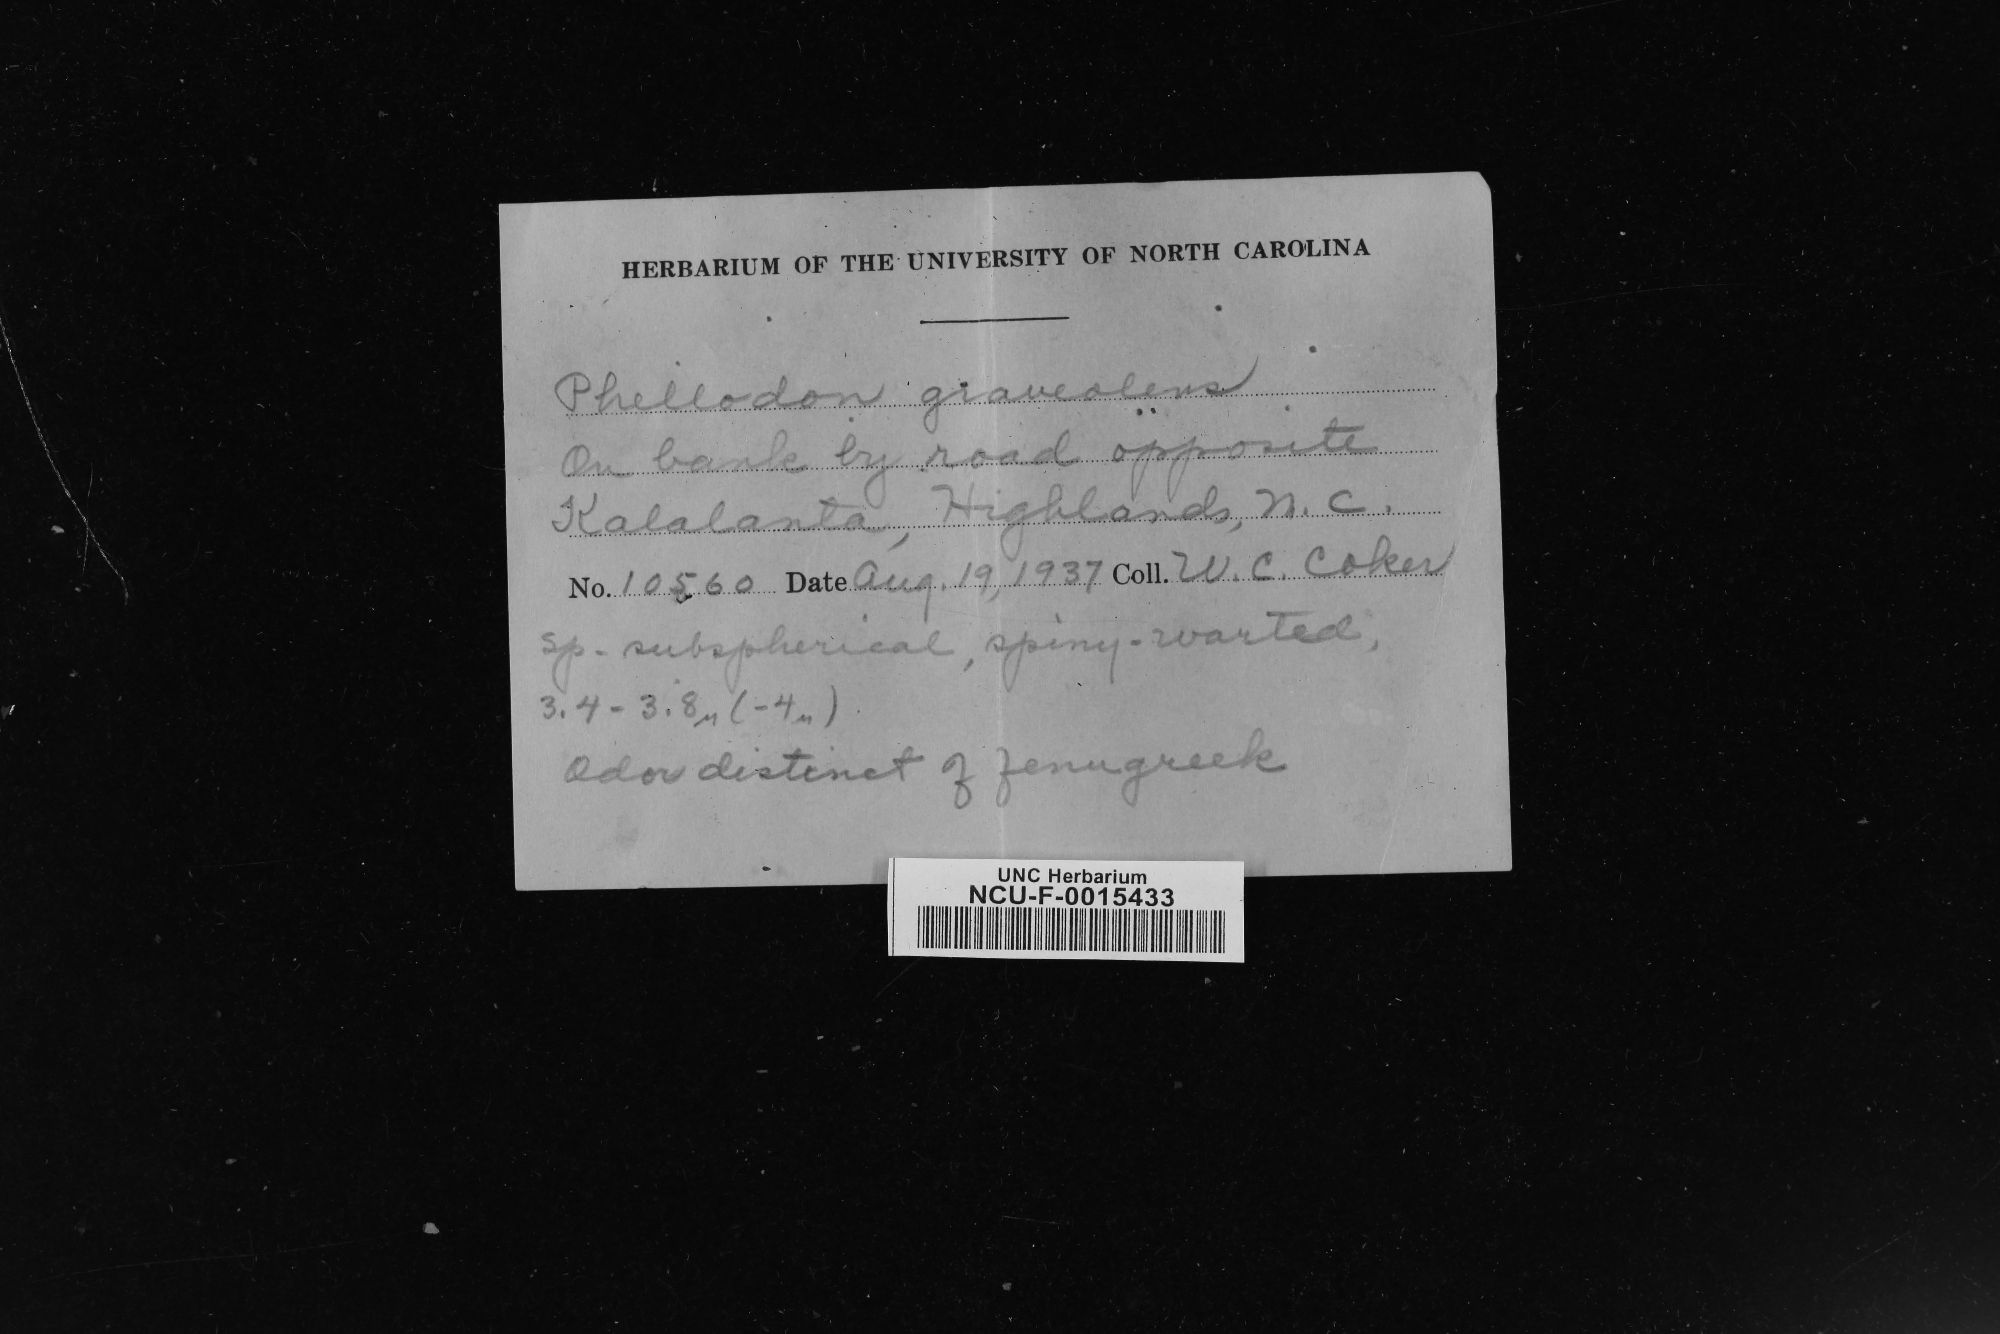 HERBARIUM OF THE UNIVERSITY OF NORTH CAROLINA
Phellodon graveolens
On bank by road opposite
Kalalanta, Highlands, N.C.
No. 10560 Date Aug. 19, 1937 Coll. W.C. Coker
Sp. subspherical, spiny-warted,
3.4-3.8µ (-4µ)
Odor distinct of fenugreek
UNC Herbarium
NCU-F-0015433